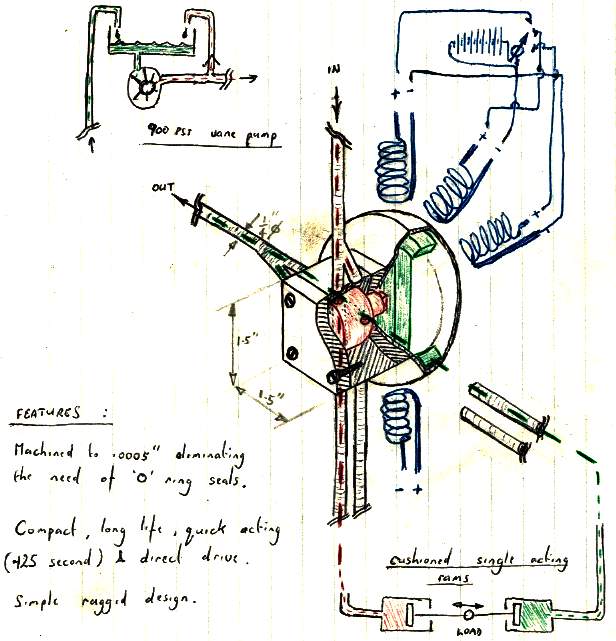 900 PSI vane pump
IN
OUT
1/4" ϕ
1.5"
1.5"
FEATURES :
Machined to .0005" eliminating
the need of 'O' ring seals.
Compact, long life, quick acting
(.125 second) & direct drive.
Simple rugged design.
Cushioned single acting
rams
LOAD
+ -
+
-
- +
- +